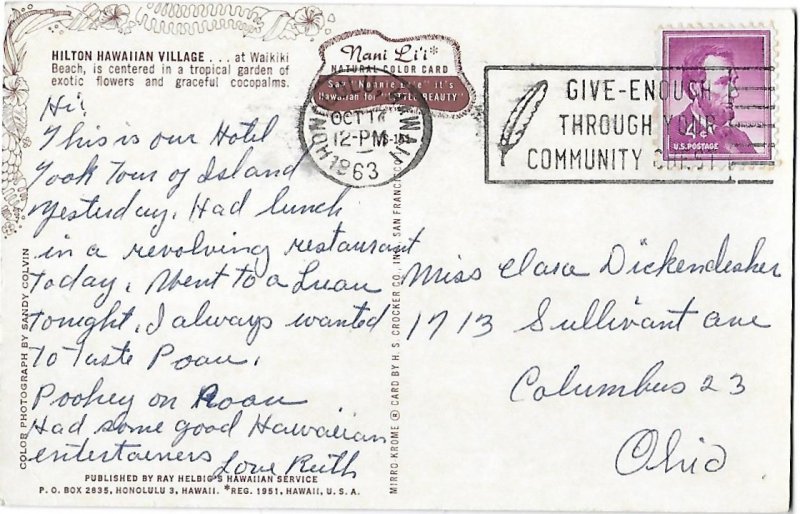 HILTON HAWAIIAN VILLAGE . . . at Waikiki
Beach, is centered in a tropical garden of
exotic flowers and graceful cocopalms.
Nani Li'i*
NATURAL COLOR CARD
Say "Nannie Lee" it's
Hawaiian for "LITTLE BEAUTY"
HONOLULU HAWAII
OCT 17
12-PM
1963
GIVE-ENOUGH
THROUGH YOUR
COMMUNITY CHEST
4¢
U.S. POSTAGE
Hi!
This is our Hotel
Took Tour of Island
yesterday. Had lunch
in a revolving restaurant
today. Went to a Luau
tonight. I always wanted
To Taste Poau.
Poohey on Poau
Had some good Hawaiian
entertainers
Love Ruth
Miss Clara Dickendesher
1713 Sullivant ave
Columbus 23
Ohio
COLOR PHOTOGRAPH BY SANDY COLVIN
MIRRO-KROME ® CARD BY H. S. CROCKER CO., INC., SAN FRANCISCO
PUBLISHED BY RAY HELBIG'S HAWAIIAN SERVICE
P. O. BOX 2835, HONOLULU 3, HAWAII. *REG. 1951, HAWAII, U. S. A.